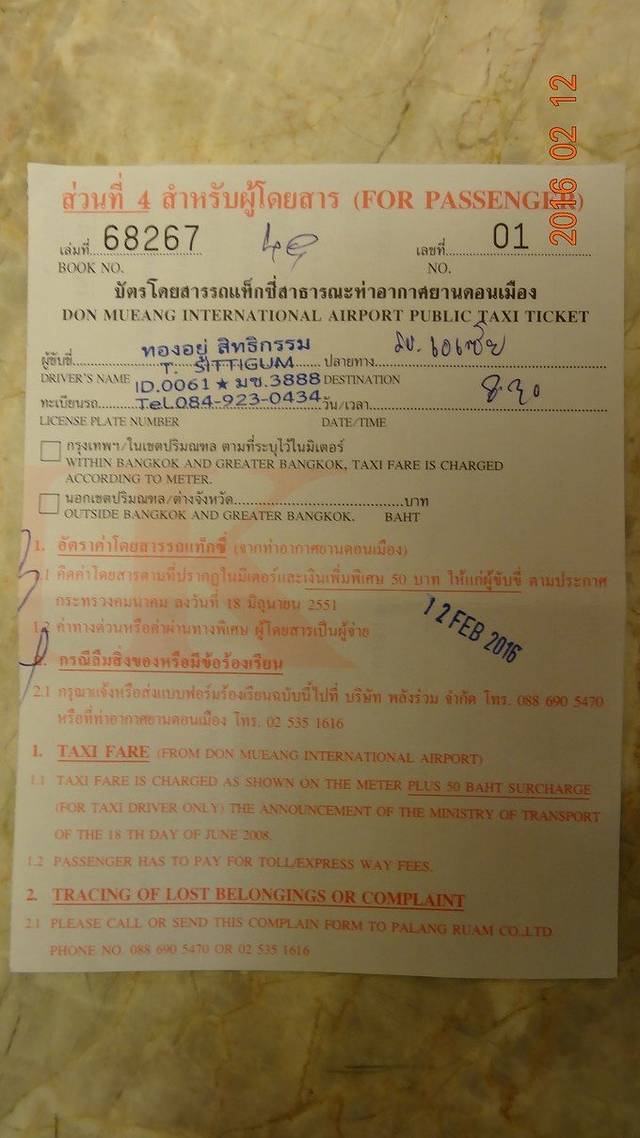 2016 02 12
ส่วนที่ 4 สำหรับผู้โดยสาร (FOR PASSENGER)
เล่มที่ 68267 เลขที่ 01
BOOK NO. NO.
บัตรโดยสารรถแท็กซี่สาธารณะท่าอากาศยานดอนเมือง
DON MUEANG INTERNATIONAL AIRPORT PUBLIC TAXI TICKET
ทองอยู่ สิทธิกรรม
ผู้ขับขี่ T. SITTIGUM ปลายทาง รร. เอเชีย
DRIVER'S NAME ID.0061 ★ มช.3888 DESTINATION
ทะเบียนรถ Tel.084-923-0434 วัน/เวลา 8.30
LICENSE PLATE NUMBER DATE/TIME
กรุงเทพฯ/ในเขตปริมณฑล ตามที่ระบุไว้ในมิเตอร์
WITHIN BANGKOK AND GREATER BANGKOK, TAXI FARE IS CHARGED
ACCORDING TO METER.
นอกเขตปริมณฑล/ต่างจังหวัด บาท
OUTSIDE BANGKOK AND GREATER BANGKOK. BAHT
1. อัตราค่าโดยสารรถแท็กซี่ (จากท่าอากาศยานดอนเมือง)
1.1 คิดค่าโดยสารตามที่ปรากฏในมิเตอร์และเงินเพิ่มพิเศษ 50 บาท ให้แก่ผู้ขับขี่ ตามประกาศ
กระทรวงคมนาคม ลงวันที่ 18 มิถุนายน 2551
12 FEB 2016
1.2 ค่าทางด่วนหรือค่าผ่านทางพิเศษ ผู้โดยสารเป็นผู้จ่าย
2. กรณีลืมสิ่งของหรือมีข้อร้องเรียน
2.1 กรุณาแจ้งหรือส่งแบบฟอร์มร้องเรียนฉบับนี้ไปที่ บริษัท พลังร่วม จำกัด โทร. 088 690 5470
หรือที่ท่าอากาศยานดอนเมือง โทร. 02 535 1616
1. TAXI FARE (FROM DON MUEANG INTERNATIONAL AIRPORT)
1.1 TAXI FARE IS CHARGED AS SHOWN ON THE METER PLUS 50 BAHT SURCHARGE
(FOR TAXI DRIVER ONLY) THE ANNOUNCEMENT OF THE MINISTRY OF TRANSPORT
OF THE 18 TH DAY OF JUNE 2008.
1.2 PASSENGER HAS TO PAY FOR TOLL/EXPRESS WAY FEES.
2. TRACING OF LOST BELONGINGS OR COMPLAINT
2.1 PLEASE CALL OR SEND THIS COMPLAIN FORM TO PALANG RUAM CO.,LTD
PHONE NO. 088 690 5470 OR 02 535 1616